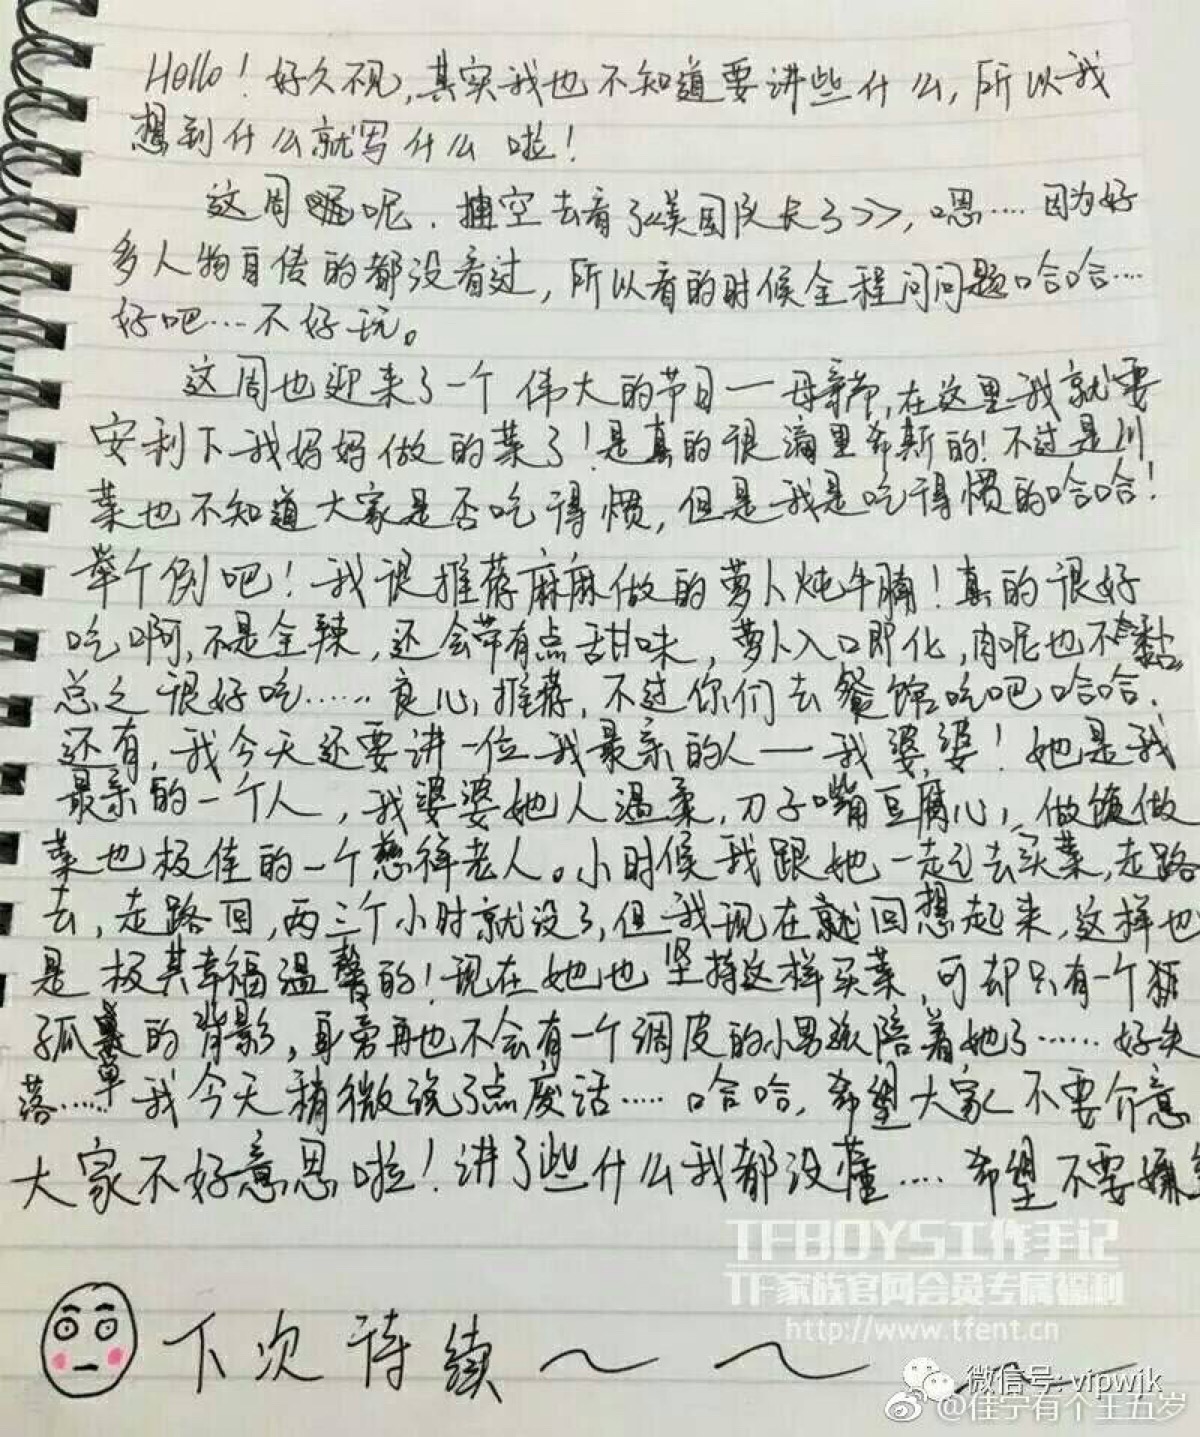 Hello！好久不见，其实我也不知道要讲些什么，所以我
想到什么就写什么啦！
这周呢，抽空去看了《美国队长3》，嗯……因为好
多人物自传的都没看过，所以看的时候全程问问题哈哈……
好吧……不好玩。
这周也迎来了一个伟大的节日—母亲节，在这里我就要
安利下我妈妈做的菜了！是真的很满里希斯的！不过是川
菜也不知道大家是否吃得惯，但是我是吃得惯的哈哈！
举个例吧！我很推荐麻麻做的萝卜炖牛腩！真的很好
吃啊，不是全辣，还会带有点甜味，萝卜入口即化，肉呢也不会黏
总之很好吃……良心推荐，不过你们去餐馆吃吧哈哈，
还有，我今天还要讲一位我最亲的人—我婆婆！她是我
最亲的一个人，我婆婆她人温柔，刀子嘴豆腐心，做饭做
菜也极佳的一个慈祥老人。小时候我跟她一起去买菜，走路
去，走路回，两三个小时就没了，但我现在就回想起来，这样也
是极其幸福温馨的！现在她也坚持这样买菜，可却只有一个
孤单的背影，身旁再也不会有一个调皮的小男孩陪着她了……好失
落……我今天稍微说了点废话……哈哈，希望大家不要介意
大家不好意思啦！讲了些什么我都没懂……希望不要嫌
下次待续～～
TFBOYS工作手记
TF家族官网会员专属福利
http://www.tfent.cn
微信号: vipwjk
@佳宁有个王五岁